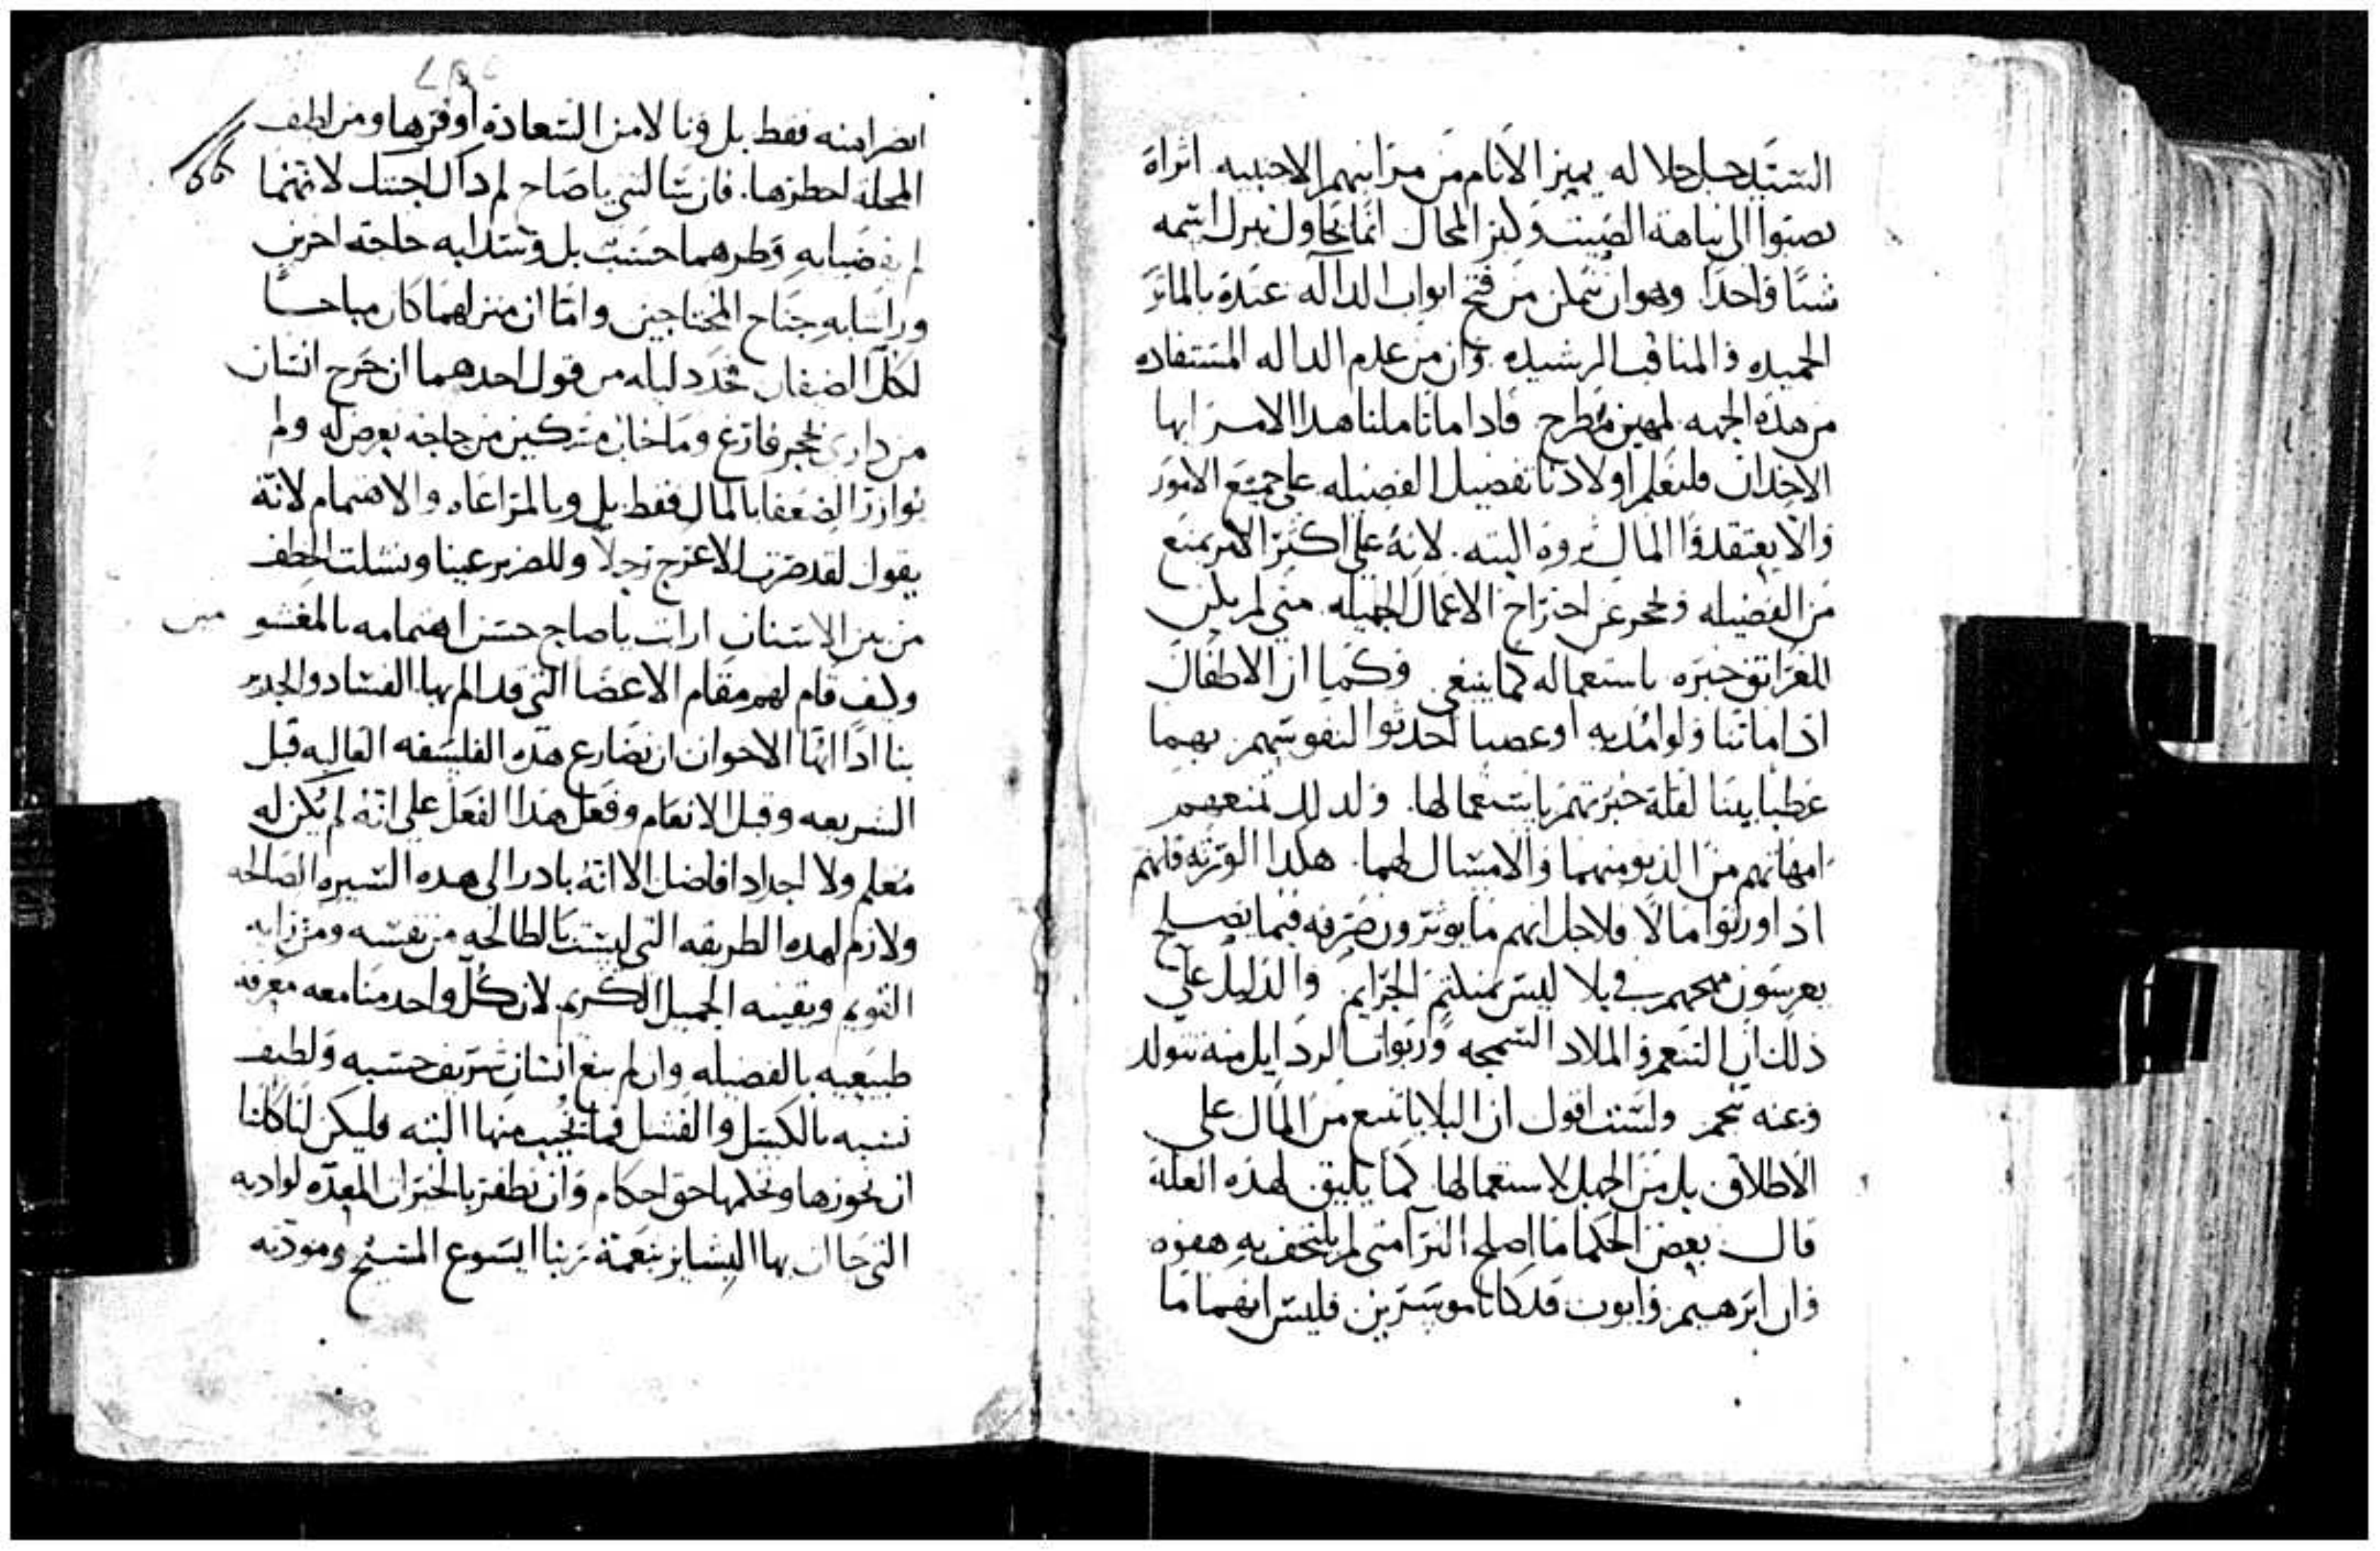 السيد جل جلاله يميز الانام من مراتبهم الاجنبيه اثراه
نصبوا الى نباهة الصيت ولكن المحال انما يحاول نيل اسمه
شيًا واحدًا وهو ان نتمكن من فتح ابواب الداله عنده بالماثر
الحميده والمناقب الرشيده وان من عدم الداله المستفاده
من هذه الجهه لمهين مطرح فاذا ما تاملنا هذا الامر ايها
الاخدان فلنعلم اولادنا تفضيل الفضيله على جميع الامور
والا يعتقدوا المال ثروه البته لانه على اكثر الامر يمنع
من الفضيله ويحجر عن اجتراح الاعمال الجميله متى لم يكن
للغرانق خبره باستعماله كما ينبغي وكما ان الاطفال
اذا ماتناولوا مُديه او عصبا احدثوا لنفوسهم بهما
عطبا بينا لقلة خبرتهم باستعمالها ولذلك تمنعهم
امهاتهم من الدنو منهما والامتثال لهما هكذا الورثه فانهم
اذا ورثوا مالًا فلاجل انهم ما يوثرون صرفه فيما يصلح
يعرسون مهجهم في بلا ليس بمنلثم الجرايم والدليل على
ذلك ان التنعم والملاذ السمجه وربوات الرذايل منه تتولد
وعنه تنجم ولست اقول ان البلايا تنبع من المال على
الاطلاق بل من الجهل لاستعمالها كما يليق لهذه العله
قال بعض الحكما ما اصلح الثرا متى لم يلتحف به هفوه
وان ابرهيم وايوب قد كانا موسرين فليس انهما ما
انضرا منه فقط بل ونالا من السعاده اوفرها ومن لطيف
المحله اخطرها فان سالتني ياصاح لم ذاك اجبتك لانهما
لم يقضيا به وطرهما حسب بل وسدا به حاجة اخرين
وراشا به جناح المحتاجين واما ان منزلهما كان مباحًا
لكل الضيفان فخذ دليله من قول احدهما ان خرج انسان
من داري بحجر فارغ وما خاب مسكين من حاجه تعرض له ولم
نوازر الضعفا بالمال فقط بل وبالمراعاه والاهتمام لانه
يقول لقد صرت للاعرج رجلًا وللضرير عينا ونشلت الخطف
من بين الاسنان ارايت ياصاح حسن اهتمامه بالمغشو
مين
وكيف قام لهم مقام الاعضا التي قد الم بها الفساد والجدير
بنا اذًا ايها الاخوان ان نضارع هذه الفلسفه العاليه قبل
الشريعه وقبل الانعام وفعل هذا الفعل على انه لم يكن له
معلم ولا اجداد افاضل الا انه بادر الى هذه السيره الصالحه
ولازم لهذه الطريقه التي ليست بالطالحه من نفسه ومن رايه
القويم ويقينه الجميل الكريم لان كل واحد منا معه معرفه
طبيعيه بالفضيله وان لم يبغ انسان شريف حسبه ولطيف
نسبه بالكسل والفشل فما يخيب منها البته فليكن لنا كلنا
ان نحوزها ونحكمها حق احكام وان نظفر بالخيرات المعده لواديه
التي حاان بها البشاير بنعمة ربنا ايسوع المسيح ومودته